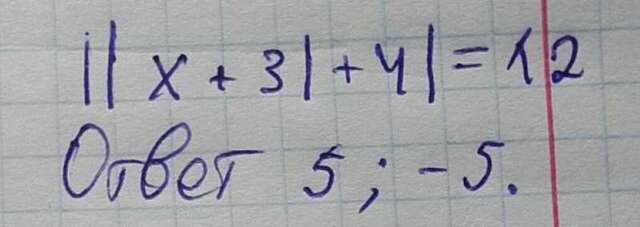 ||x + 3| + 4| = 12
Ответ 5; -5.